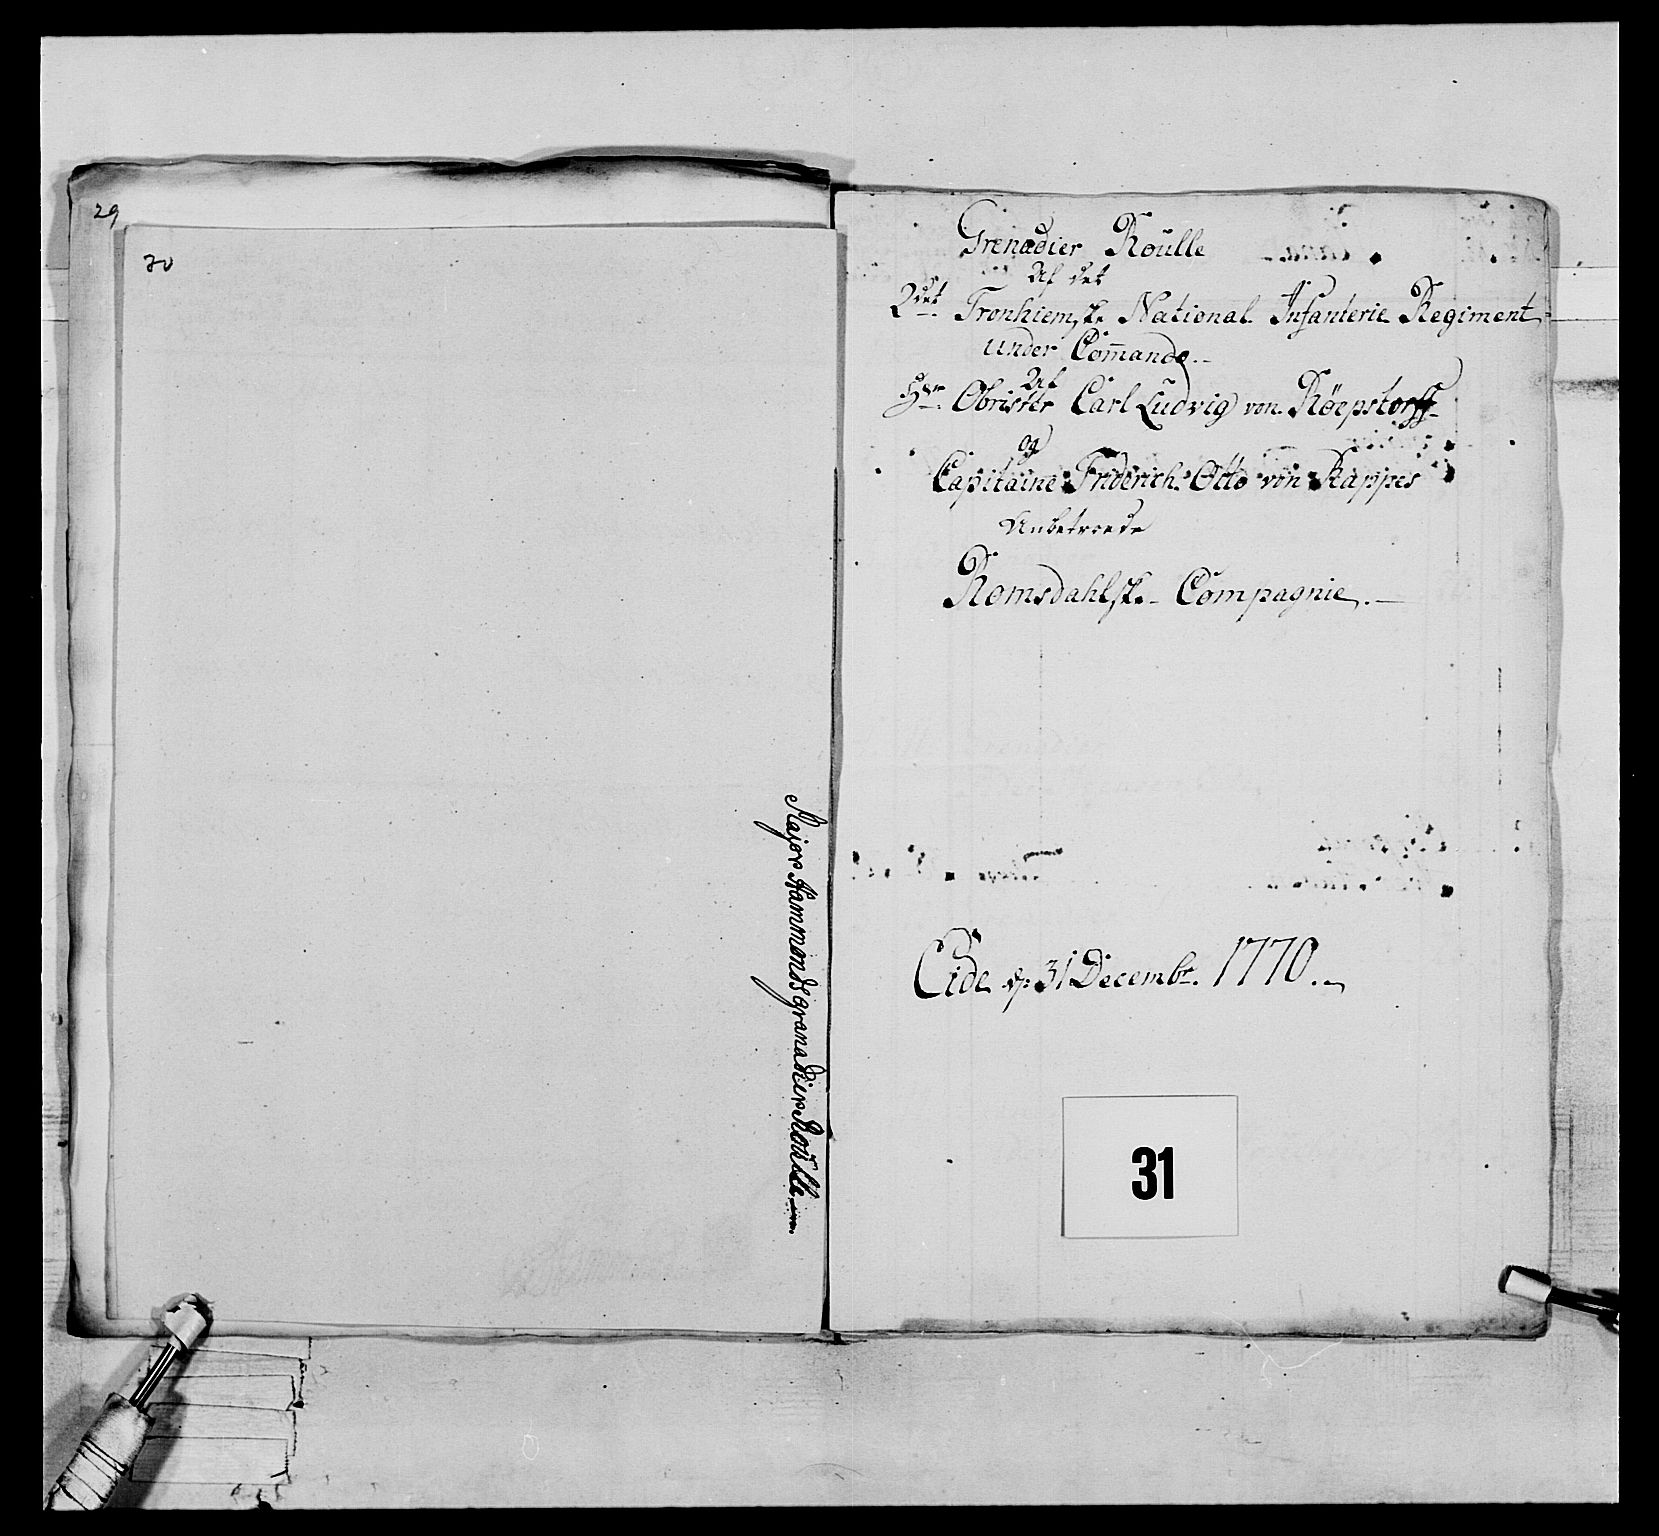 29
30
Major Hammonds granadier Roulle
Grenadier Roülle
Af det
2det Tronhiemske National Infanterie Regiment
under Com̄ando
Af
Hr Obrister Carl Ludvig von Røepstorff
og
Capitaine Friderich Otto von Rappes
Anbetroede
Romsdahlske Compagnie.
Eide d: 31 Decembr. 1770.
31